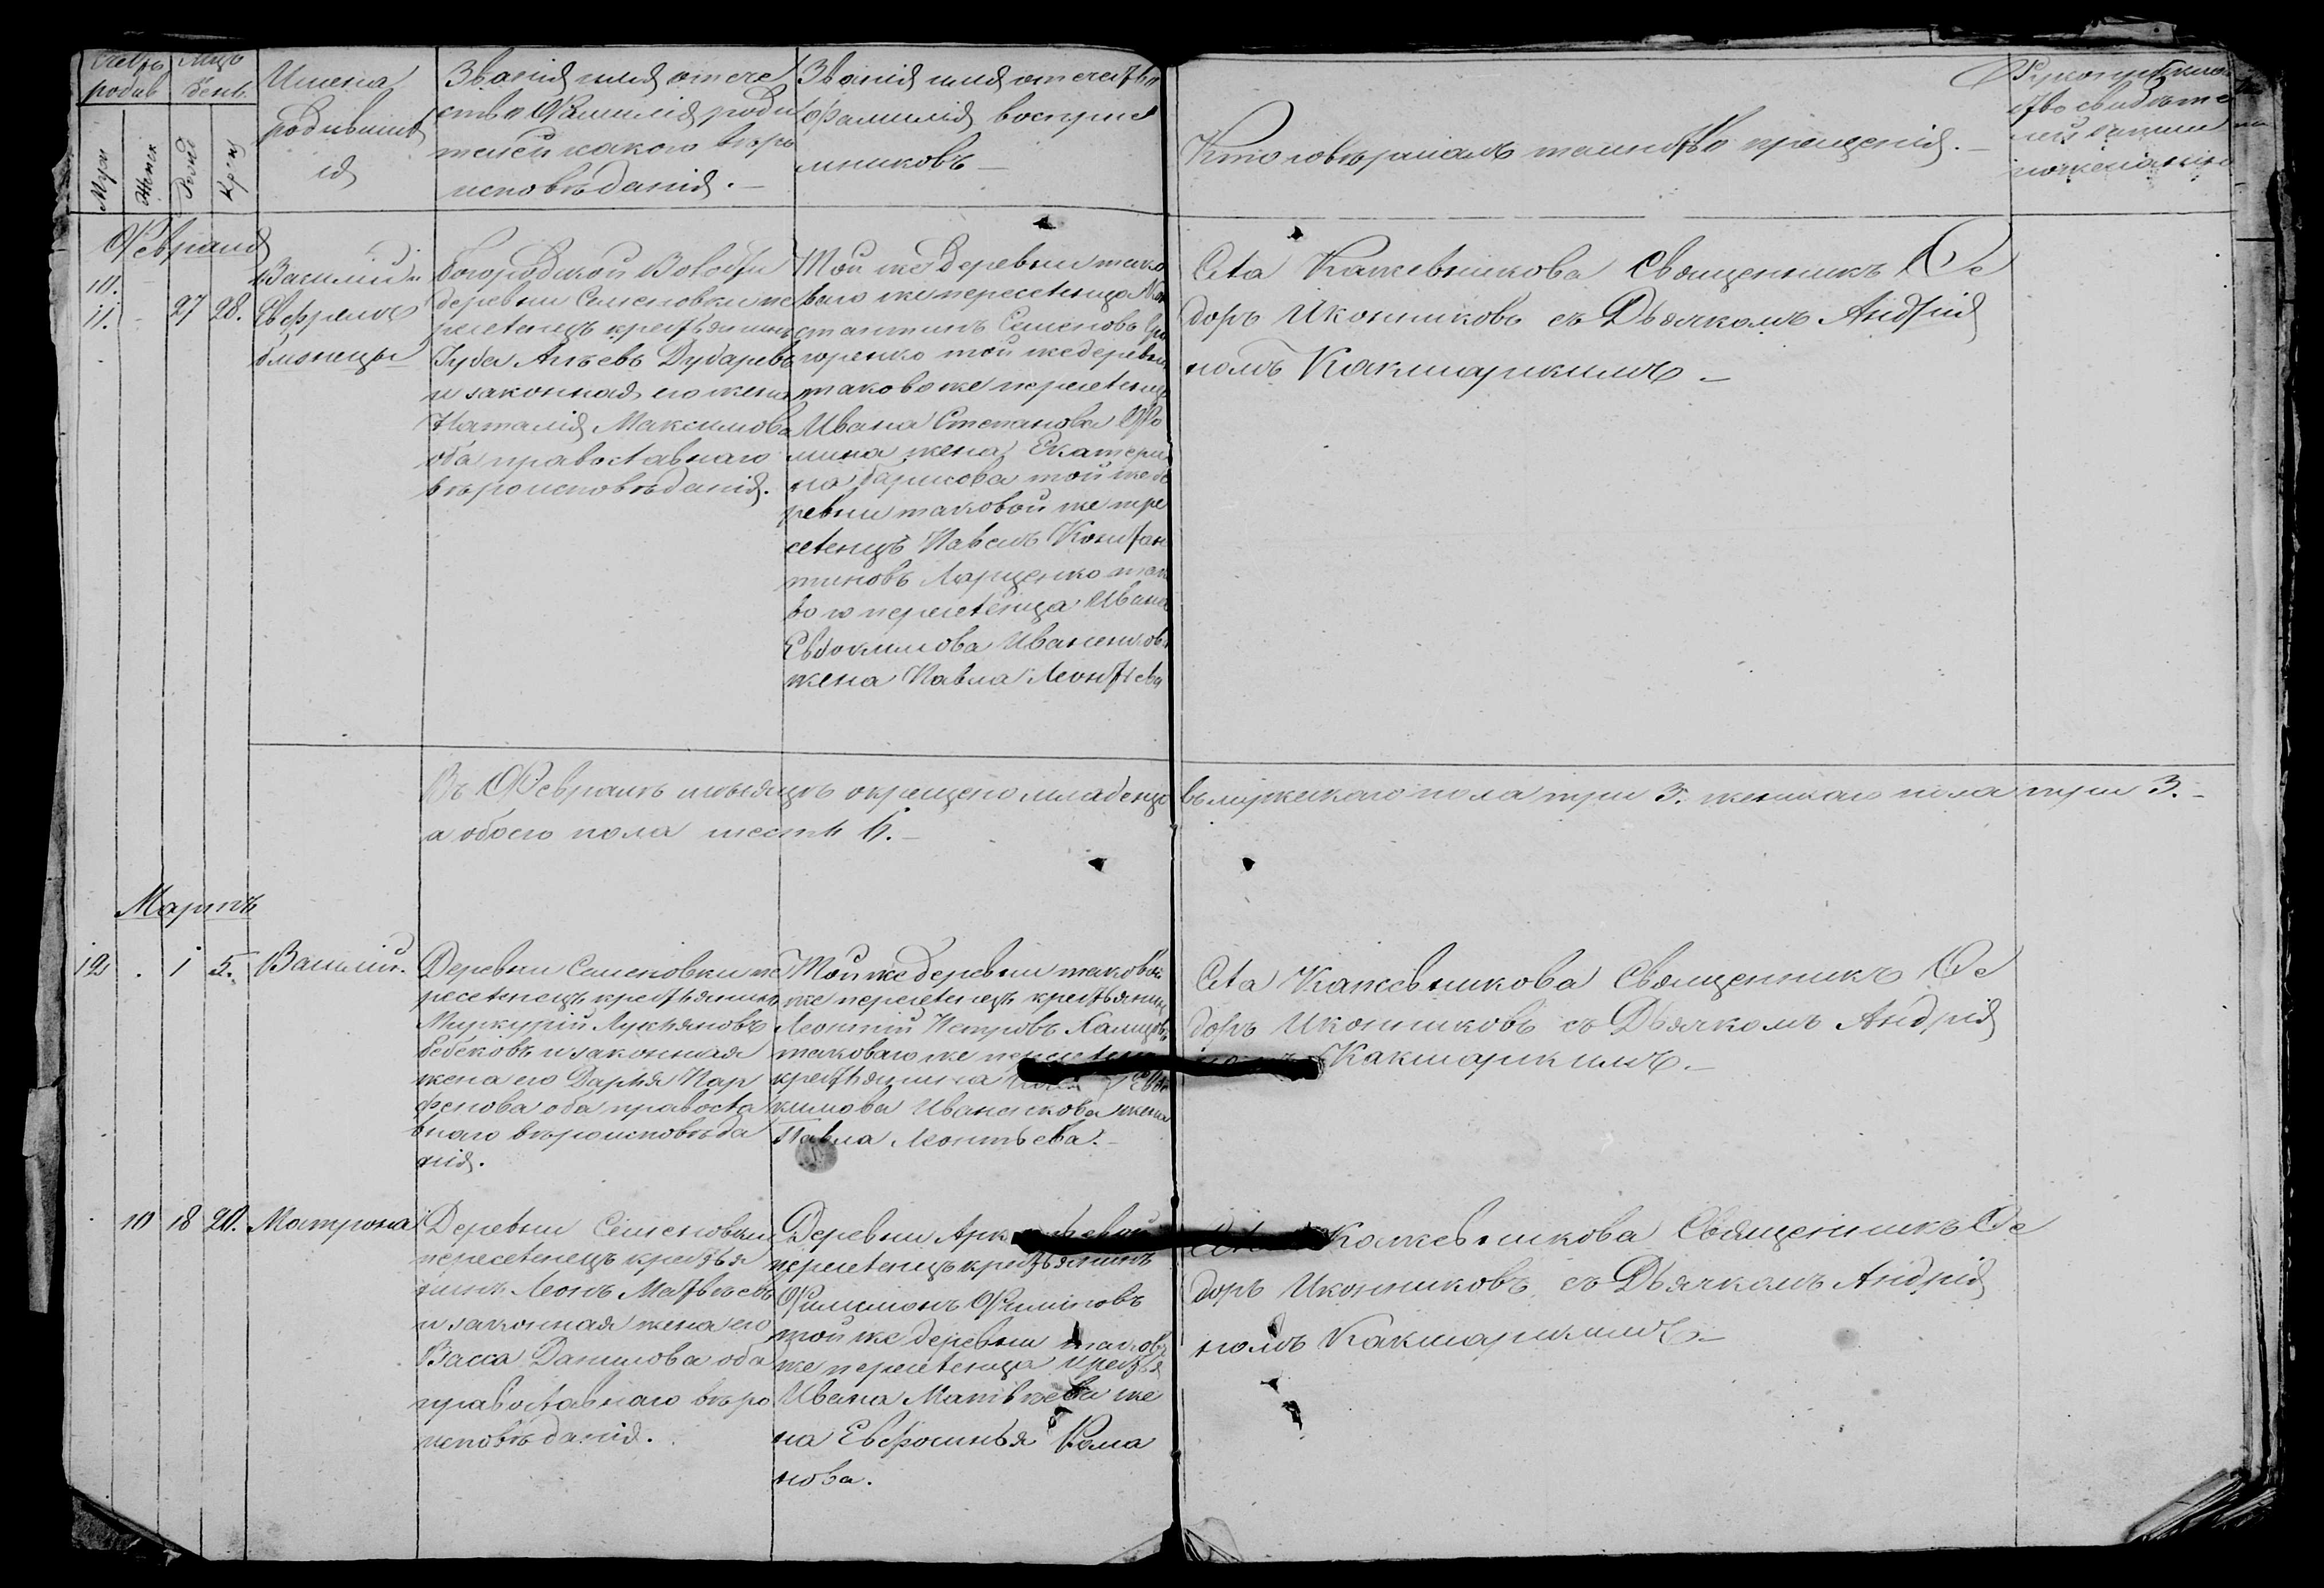 Счетъ родив
Мцъ день
Муж
Женск
Рожд
Кре
Имена
родивших
ся
Званія имя отече
ство Фамилія роди
телей какого вѣро
исповѣданія. —
Званія имя отечество
Фамилія воспріе
мниковъ —
Кто совершалъ таинство крещенія. —
Рукоприклад
ство свидѣте
лей записи
по желанію
Февраля
10.
11.
27 28.
Василій и
Ефремъ
близнецы —
Богородской Волости
деревни Семеновки пе
реселенецъ крестьянинъ
Гуда Дударевъ
и законная его жена
Наталія Максимова
оба православнаго
вѣроисповѣданія.
Той же деревни тако
ваго же переселенца Кон
стантинъ Семеновъ
той же деревни
таковоже переселенца
Ивана Степанова Фо
мина жена Екатери
на Борисова той же де
ревни таковой же пере
селенцъ Павелъ Констан
тиновъ Лащенко тако
ваго переселенца Ивана
Евдокимова Иваненкова
жена Павла Леонтьева
Села Кожевникова Священникъ Фе
доръ Иконниковъ съ Дьячкомъ Андрія
номъ Какшарскимъ. —
Въ Февралѣ мѣсяцѣ окрещено младенцо
въ мужскаго пола три 3. женскаго пола три 3. —
а обоего пола шесть 6. —
Мартъ
12 . 1 5. Василій.
Деревни Семеновки пе
реселенецъ крестьянинъ
Меркурій Лукьяновъ
Бебековъ и законная
жена его Дарья Пар
фенова оба правосла
внаго вѣроисповѣда
нія.
Той же деревни таковой
же переселенецъ крестьянинъ
Леонтій Петровъ
таковаго же переселенца
крестьянина Ивана Евдо
кимова Иваненкова жена
Павла Леонтьева. —
Села Кожевникова Священникъ Фе
доръ Иконниковъ съ Дьячкомъ Андрія
номъ Какшарскимъ. —
10 18 20. Матрона
Деревни Семеновки
переселенецъ крестья
нинъ Леонъ Матвѣевъ
и законная жена его
Васса Данилова оба
православнаго вѣро
исповѣданія.
Деревни
переселенецъ крестьянинъ
Филимонъ Филиповъ
той же деревни таков
же переселенца крестья
Ивана Матвѣева же
на Евфросинья Рома
нова.
Села Кожевникова Священникъ Фе
доръ Иконниковъ съ Дьячкомъ Андрія
номъ Какшарскимъ —